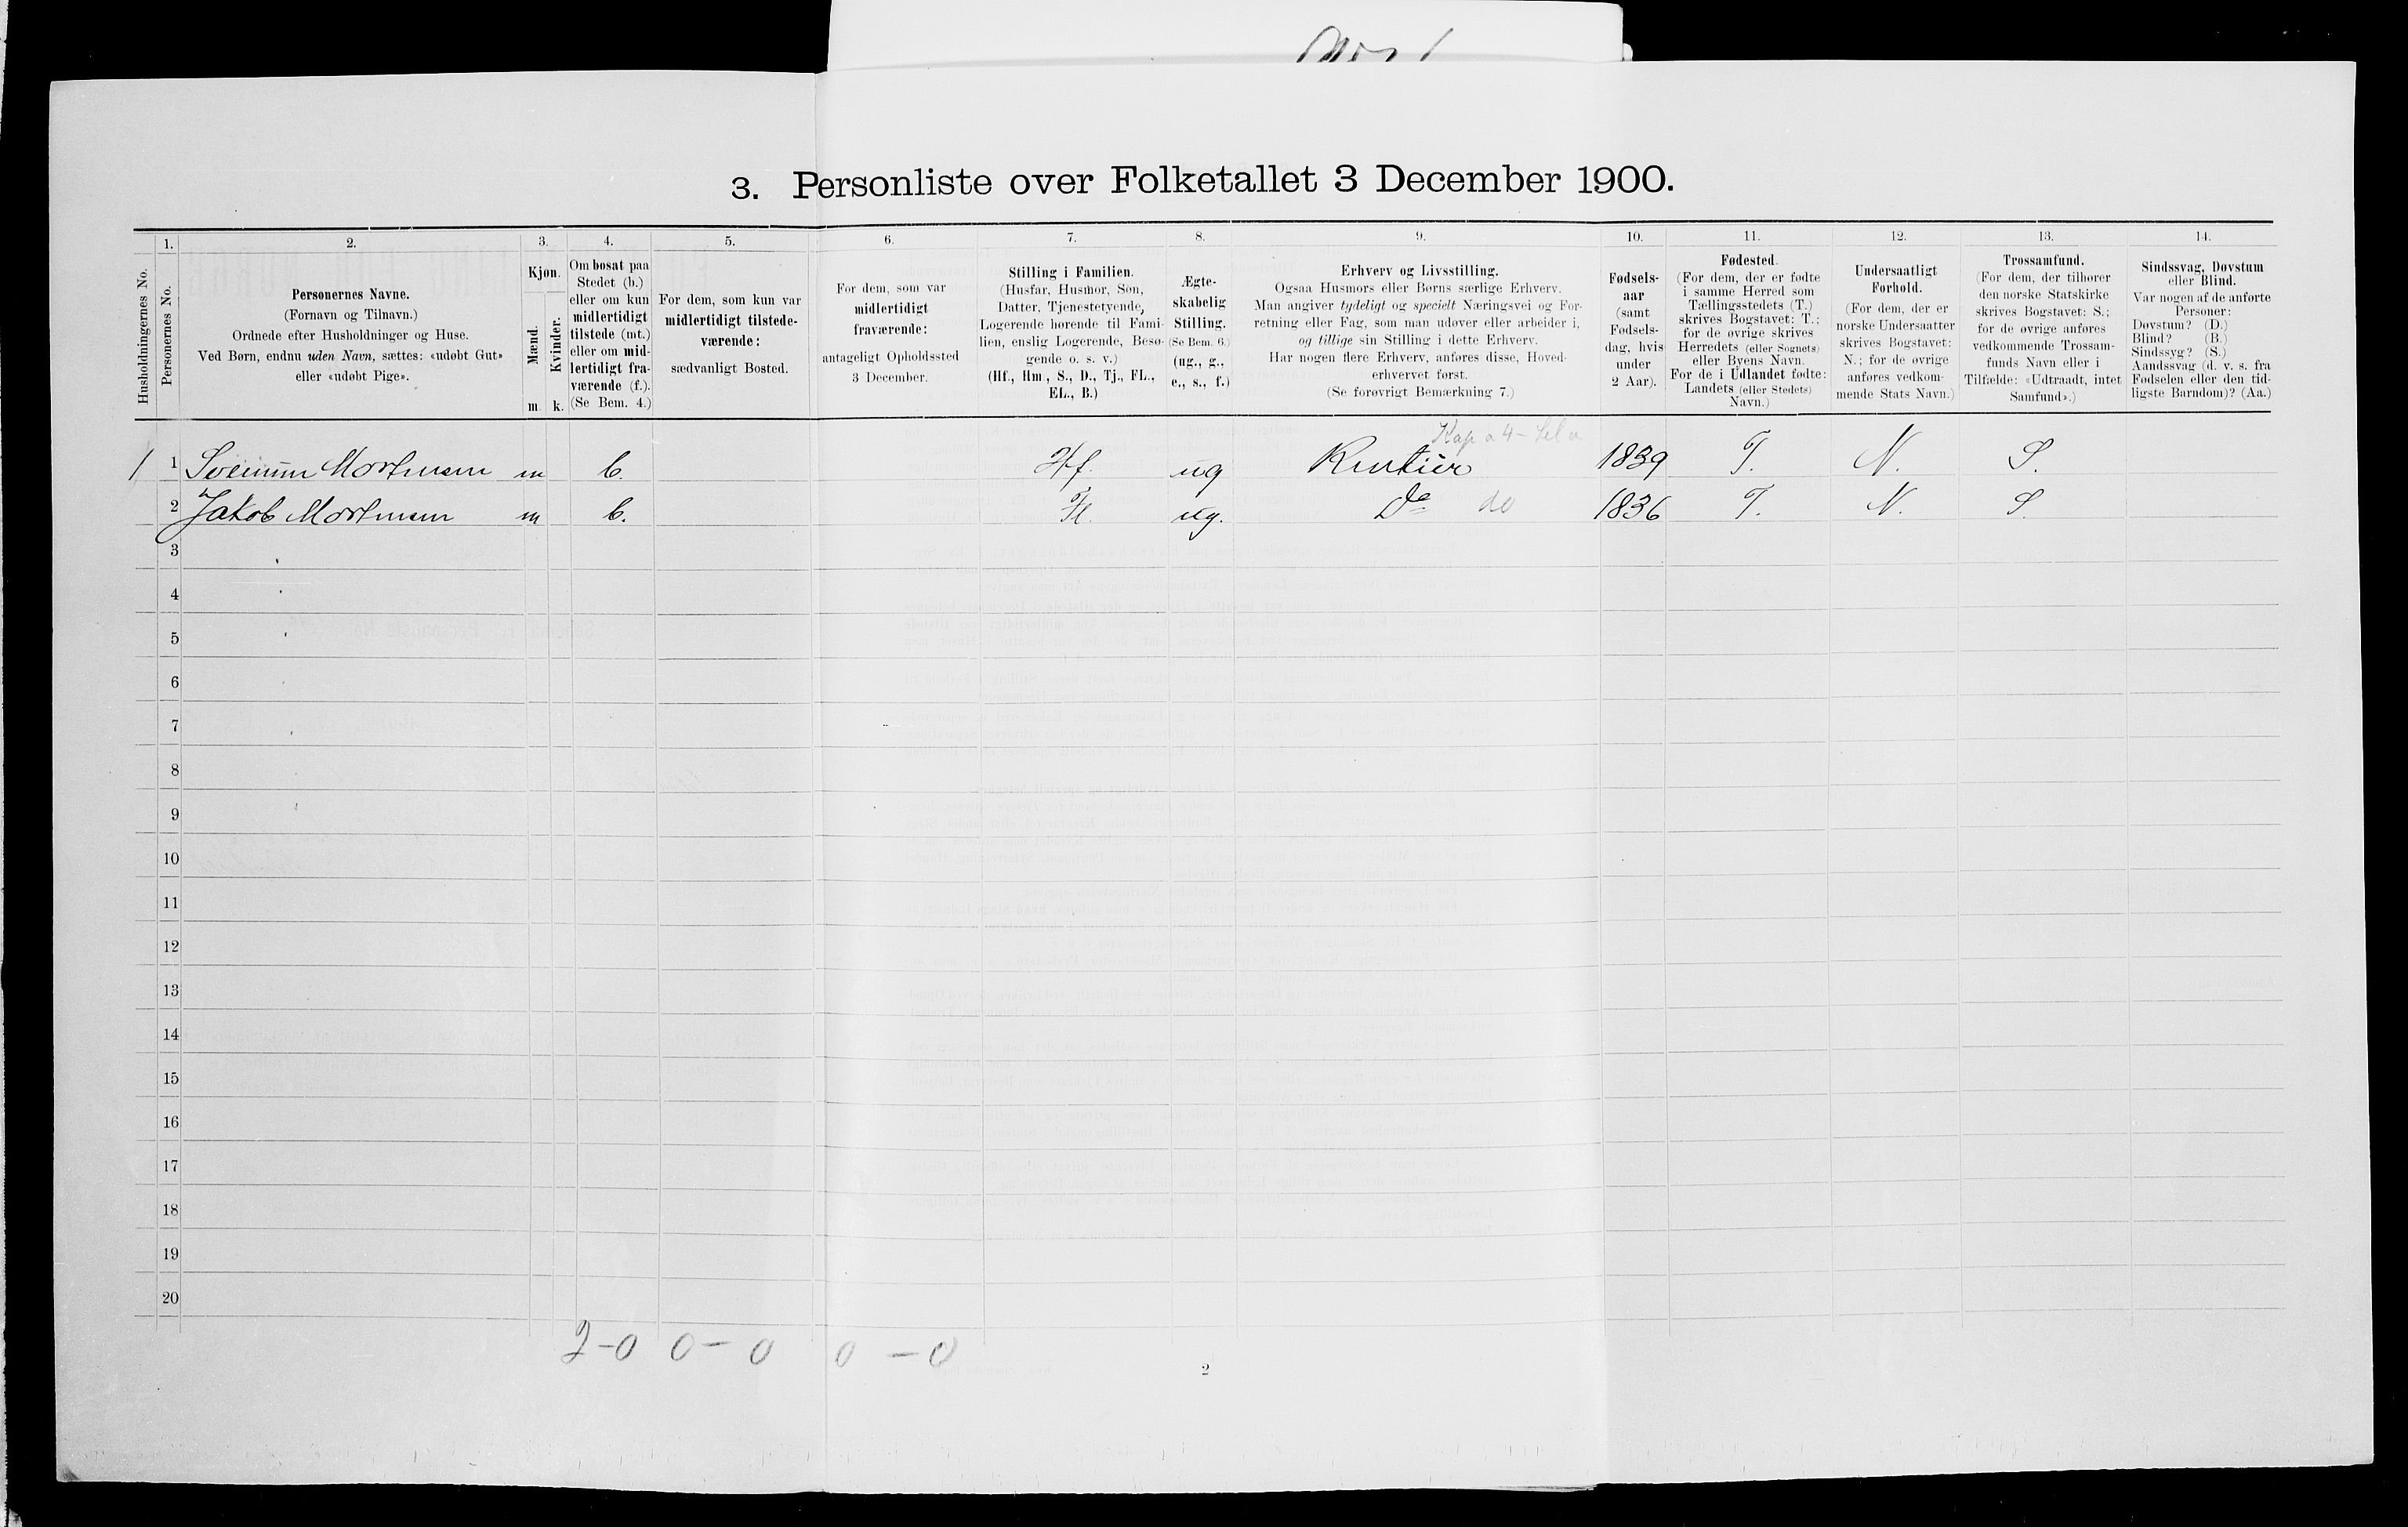 3. Personliste over Folketallet 3 December 1900.
1. 2. 3. 4. 5. 6. 7. 8. 9. 10. 11. 12. 13. 14.
Husholdningernes No.
Personernes No.
Personernes Navne.
(Fornavn og Tilnavn.)
Ordnede efter Husholdninger og Huse.
Ved Børn, endnu uden Navn, sættes: «udøbt Gut»
eller «udøbt Pige».
Kjøn.
Mænd.
Kvinder.
m. k.
Om bosat paa
Stedet (b.)
eller om kun
midlertidigt
tilstede (mt.)
eller om mid-
lertidigt fra-
værende (f.).
(Se Bem. 4.)
For dem, som kun var
midlertidigt tilstede-
værende:
sædvanligt Bosted.
For dem, som var
midlertidigt
fraværende:
antageligt Opholdssted
3 December.
Stilling i Familien.
(Husfar, Husmor, Søn,
Datter, Tjenestetyende,
Logerende hørende til Fami-
lien, enslig Logerende, Besø-
gende o. s. v.)
(Hf., Hm., S., D., Tj., FL.,
EL., B.)
Ægte-
skabelig
Stilling.
(Se Bem. 6.)
(ug., g.,
e., s., f.)
Erhverv og Livsstilling.
Ogsaa Husmors eller Børns særlige Erhverv.
Man angiver tydeligt og specielt Næringsvei og For-
retning eller Fag, som man udøver eller arbeider i,
og tillige sin Stilling i dette Erhverv.
Har nogen flere Erhverv, anføres disse, Hoved-
erhvervet først.
(Se forøvrigt Bemærkning 7.)
Fødsels-
aar
(samt
Fødsels-
dag, hvis
under
2 Aar).
Fødested.
(For dem, der er fødte
i samme Herred som
Tællingsstedets (T.)
skrives Bogstavet: T.;
for de øvrige skrives
Herredets (eller Sognets)
eller Byens Navn.
For de i Udlandet fødte:
Landets (eller Stedets)
Navn.)
Undersaatligt
Forhold.
(For dem, der er
norske Undersaatter
skrives Bogstavet:
N.; for de øvrige
anføres vedkom-
mende Stats Navn.)
Trossamfund.
(For dem, der tilhører
den norske Statskirke
skrives Bogstavet: S.;
for de øvrige anføres
vedkommende Trossam-
funds Navn eller i
Tilfælde: «Udtraadt, intet
Samfund».)
Sindssvag, Døvstum
eller Blind.
Var nogen af de anførte
Personer:
Døvstum? (D.)
Blind? (B.)
Sindssyg? (S.)
Aandssvag (d. v. s. fra
Fødselen eller den tid-
ligste Barndom)? (Aa.)
1 1 Mortensen m b. Hf. ug Rentier 1839 T. N. S.
2 Jakob Mortensen m b. Fl. ug. Do do 1836 T. N. S.
3
4
5
6
7
8
9
10
11
12
13
14
15
16
17
18
19
20
2-0 0-0 0-0
2